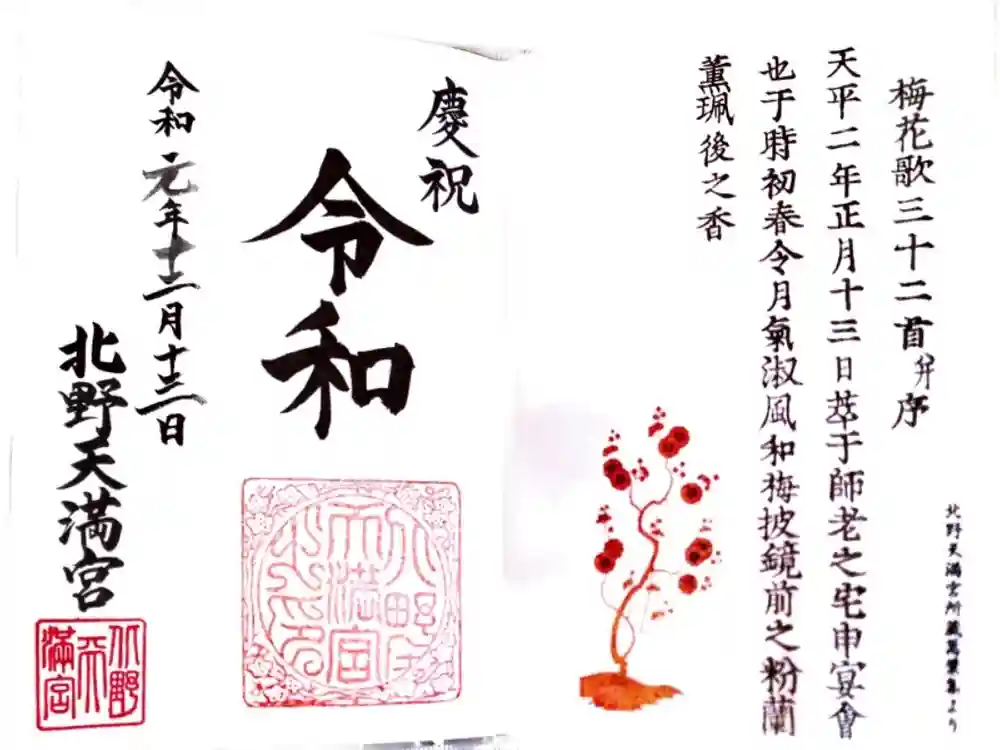 梅花歌三十二首并序
天平二年正月十三日萃于師老之宅申宴會
也于時初春令月氣淑風和梅披鏡前之粉蘭
薫珮後之香
北野天満宮所蔵萬葉集より
慶祝
令和
令和元年十二月十三日
北野天満宮
北野
天
滿宮